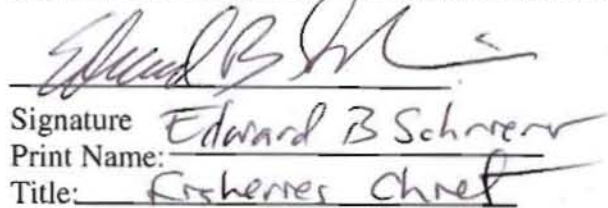 Signature Edward B
Print Name:
Title: Fisheries Chief